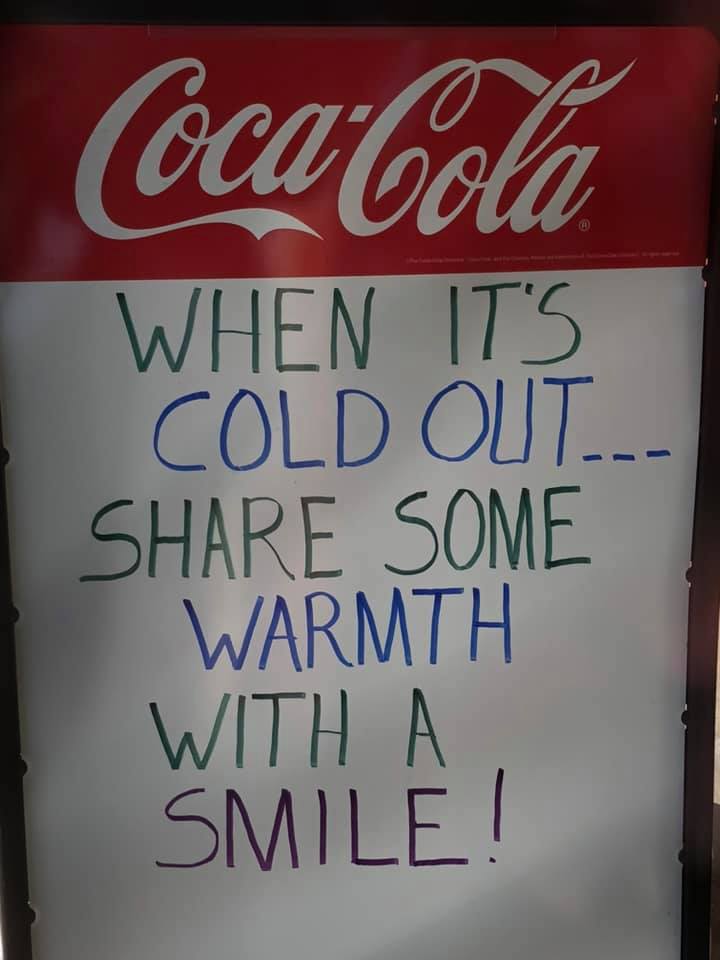 Coca-Cola
®
WHEN IT'S
COLD OUT...
SHARE SOME
WARMTH
WITH A
SMILE!